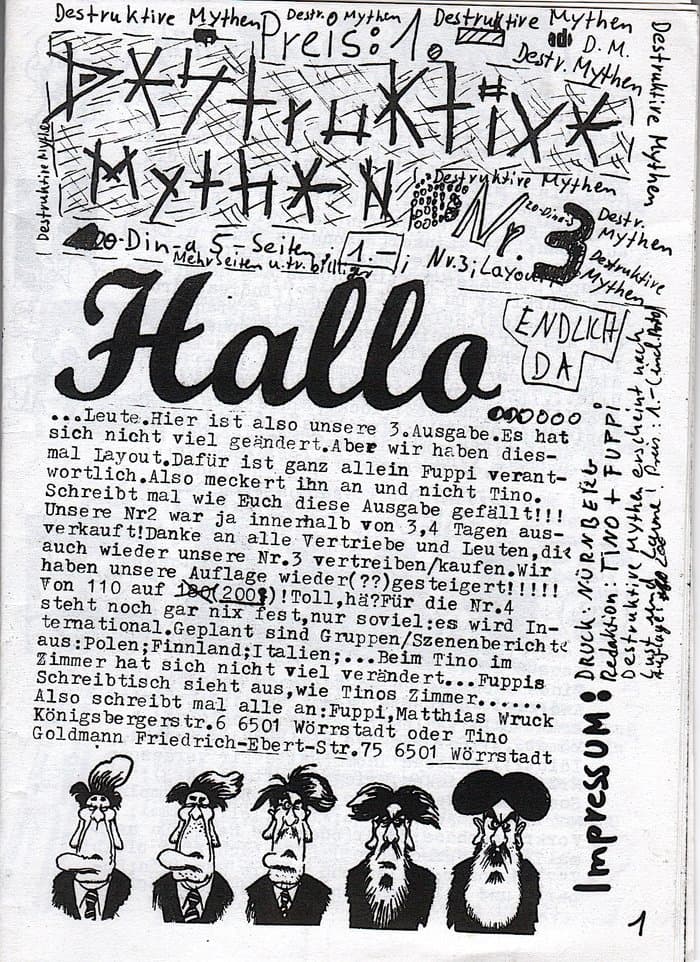 Destruktive Mythen
Destr. Mythen
Destruktive Mythen
Preis: 1.
D.M.
Destr. Mythen
Destruktive Mythen
Destruktive Mythen
Destruktive
Mythen
Destruktive Mythen
Nr. 3
Destr.
Mythen
Destruktive
Mythen
20-Din-a 5-Seiten; 1.-; Nr.3; Layout
Mehrseiten u.tr. billiger
Hallo
ENDLICH
DA
...Leute.Hier ist also unsere 3.Ausgabe.Es hat
sich nicht viel geändert.Aber wir haben dies-
mal Layout.Dafür ist ganz allein Fuppi verant-
wortlich.Also meckert ihn an und nicht Tino.
Schreibt mal wie Euch diese Ausgabe gefällt!!!
Unsere Nr2 war ja innerhalb von 3,4 Tagen aus-
verkauft!Danke an alle Vertriebe und Leuten,die
auch wieder unsere Nr.3 vertreiben/kaufen.Wir
haben unsere Auflage wieder(??)gesteigert!!!!!
Von 110 auf (200)!Toll,hä?Für die Nr.4
steht noch gar nix fest,nur soviel:es wird In-
ternational.Geplant sind Gruppen/Szenenberichte
aus:Polen;Finnland;Italien;...Beim Tino im
Zimmer hat sich nicht viel verändert...Fuppis
Schreibtisch sieht aus,wie Tinos Zimmer......
Also schreibt mal alle an:Fuppi,Matthias Wruck
Königsbergerstr.6 6501 Wörrstadt oder Tino
Goldmann Friedrich-Ebert-Str.75 6501 Wörrstadt
Impressum:
DRUCK: NÜRNBERG
Redaktion: TINO + FUPPI
Destruktive Mythen erscheint nach
Lust und Laune! Preis: 1.- (incl. Porto)
Auflage:
1